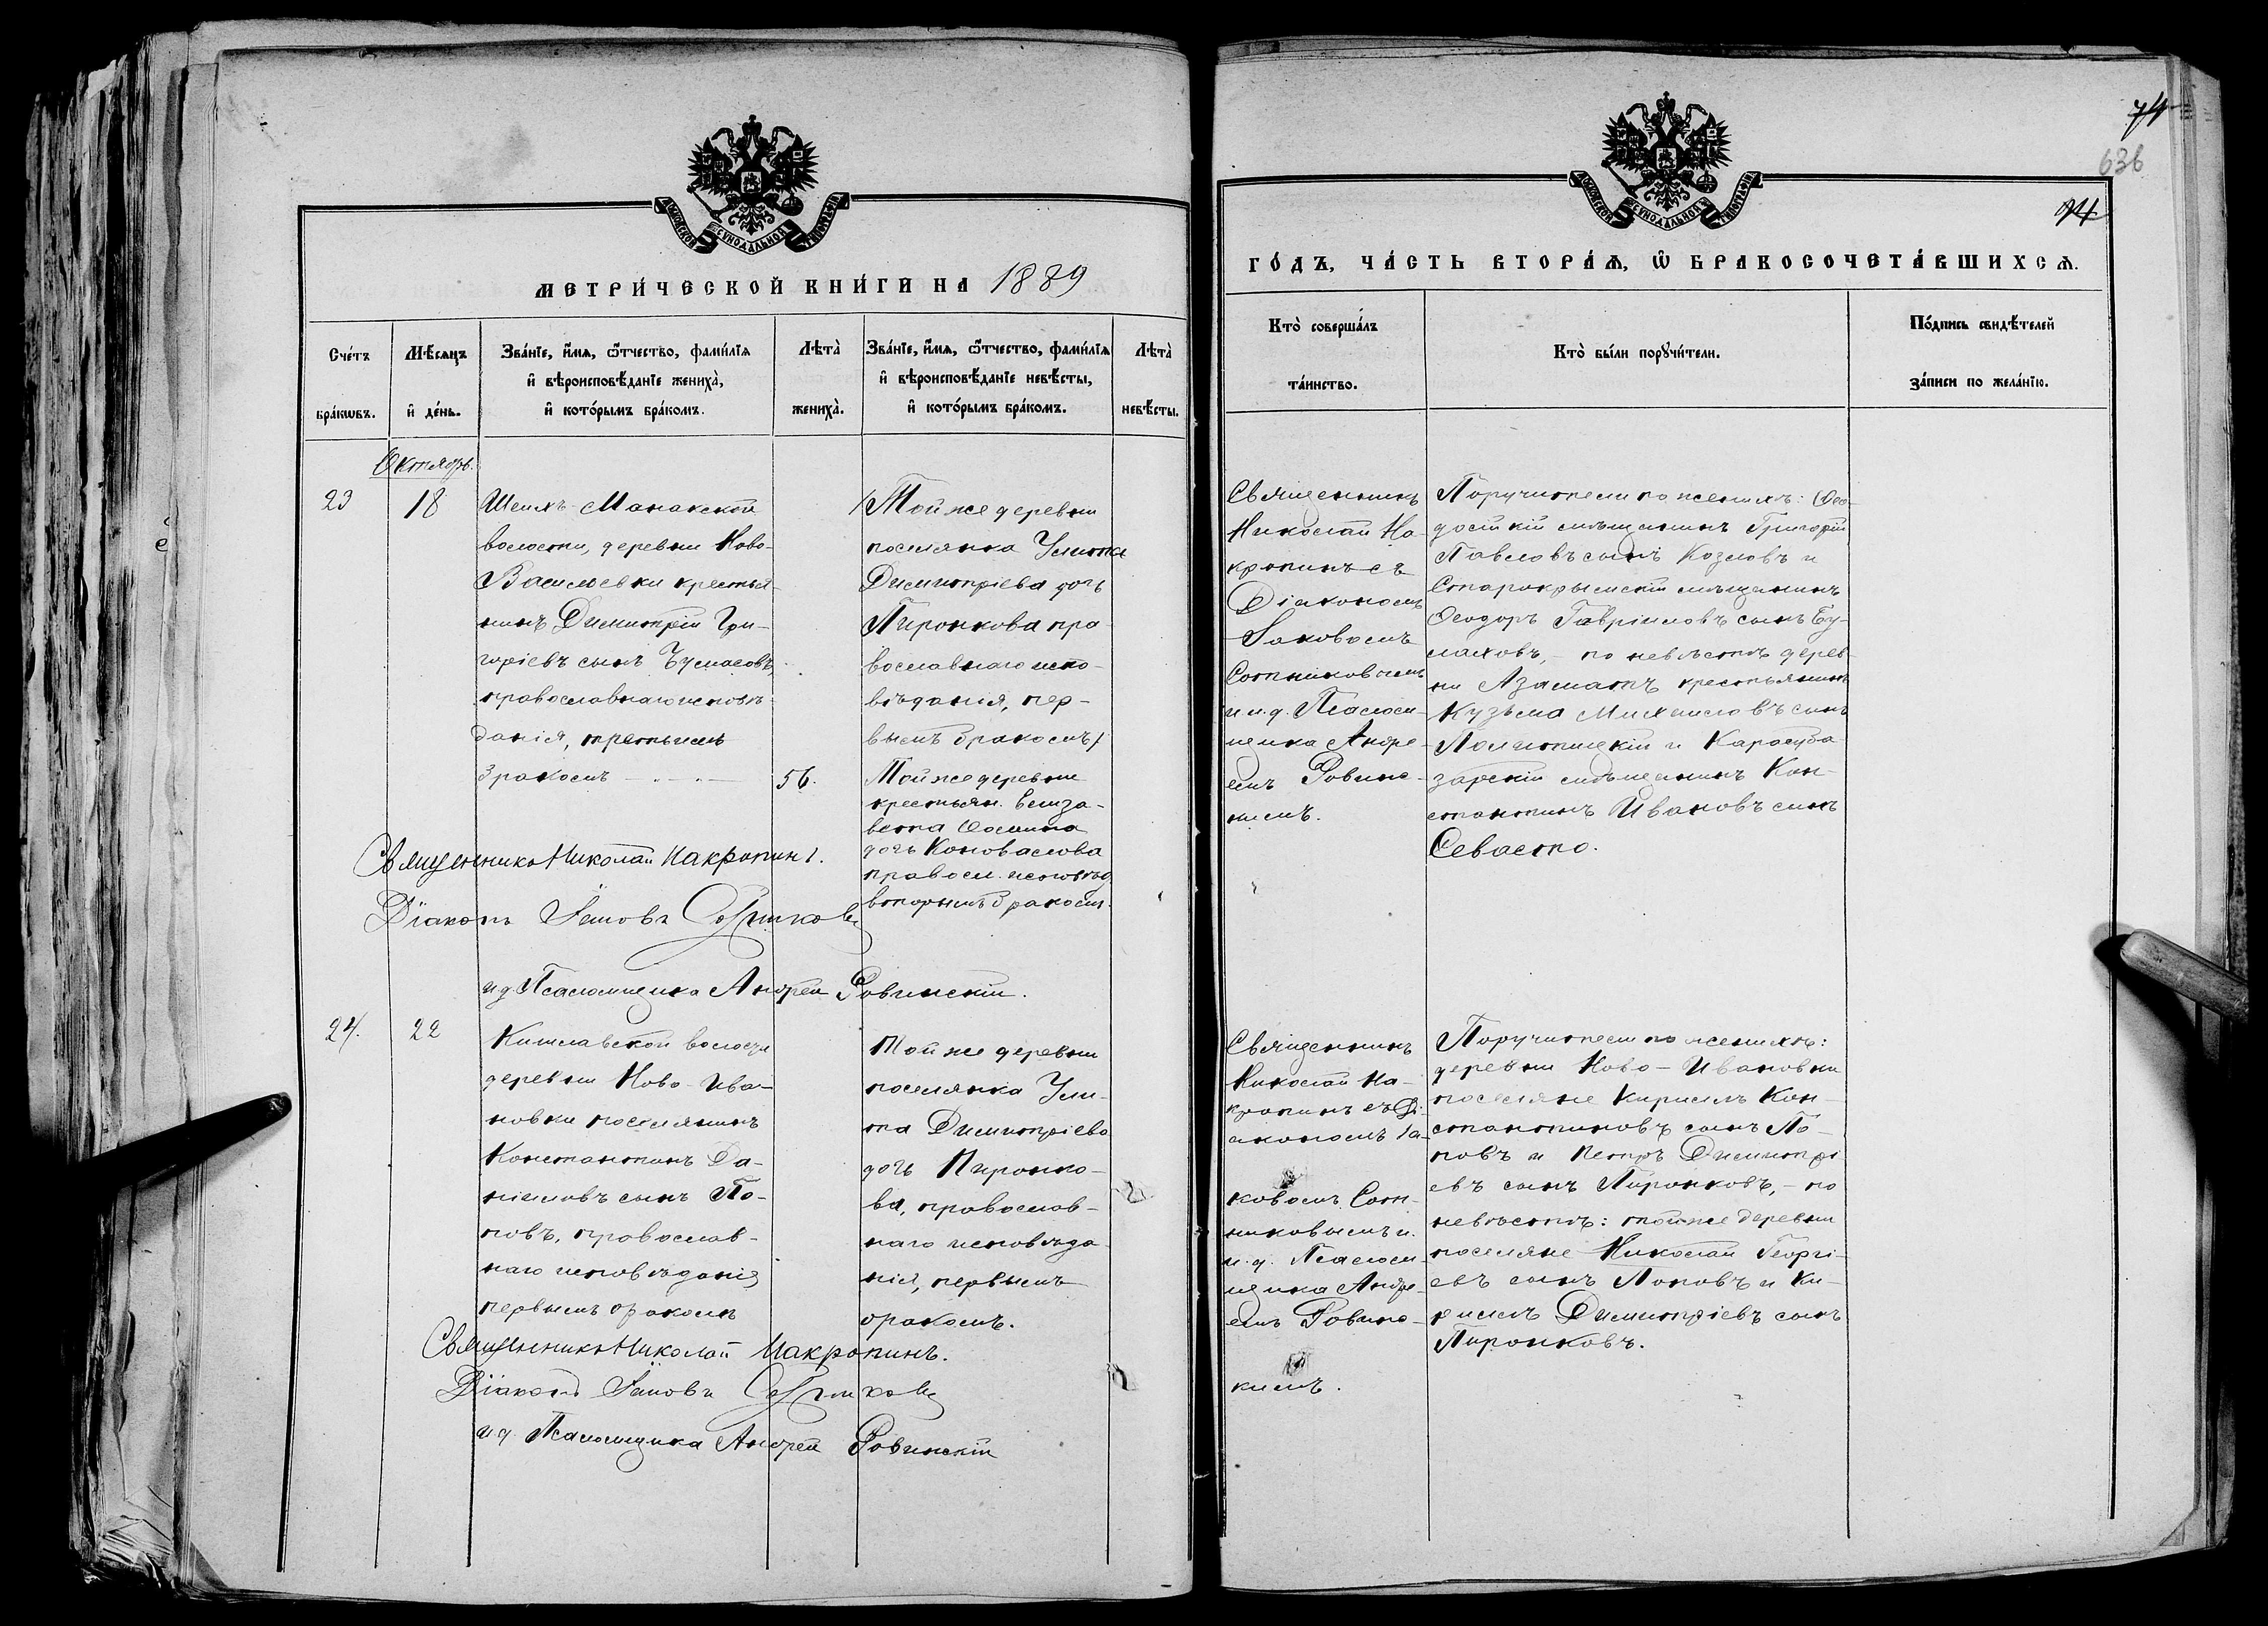 МОСКОВСКОЙ СУНОДАЛЬНОЙ ТИПОГРАФІИ
МЕТРИ́ЧЕСКОЙ КНИ́ГИ НА 1889
Сче́тъ бра́кѡвъ.
Мѣ́сяцъ и҆ де́нь.
Зва́нїе, и҆́мя, ѻ҆́тчество, фами́лїя
и҆ вѣроисповѣ́данїе жениха̀,
и҆ кото́рымъ бра́комъ.
Лѣта̀ жениха̀.
Зва́нїе, и҆́мя, ѻ҆́тчество, фами́лїя
и҆ вѣроисповѣ́данїе невѣ́сты,
и҆ кото́рымъ бра́комъ.
Лѣта̀ невѣ́сты.
Октябрь.
23
18
Шеихъ-Манакской
волости, деревни Ново-
Василевки крестья-
нинъ Димитрій Гри-
горіевъ сынъ
православнаго исповѣ-
данія, третьимъ
бракомъ
56.
Той же деревни
поселянка Улита
Димитріева дочь
Пиронкова пра-
вославнаго испо-
вѣданія, пер-
вымъ бракомъ/
Той же деревни
крестьян. Елиза-
вета
дочь Коновалова
правосл. исповѣд.
вторымъ бракомъ.
Священникъ Николай Макропинъ.
Діаконъ Іаковъ Сотниковъ
и д Псаломщика Андрей Ровинскій.
24.
22
Кишлавской волости
деревни Ново-Ива-
новки поселянинъ
Константинъ Да-
ніиловъ сынъ По-
повъ, православ-
наго исповѣданія
первымъ бракомъ
Той же деревни
поселянка Ули-
та Димитріева
дочь Пиронко-
ва, православ-
наго исповѣда-
нія, первымъ
бракомъ.
Священникъ Николай Макропинъ.
Діаконъ Іаковъ Сотниковъ
и д. Псаломщика Андрей Ровинскій
74
636
74
МОСКОВСКОЙ СУНОДАЛЬНОЙ ТИПОГРАФІИ
ГО́ДЪ, ЧА́СТЬ ВТОРА́Ѧ, Ѽ БРАКОСОЧЕТА́ВШИХСѦ.
Кто̀ соверша́лъ
та́инство.
Кто̀ бы́ли порꙋчи́тели.
По́дпись свидѣ́телей
за́писи по жела́нїю.
Священникъ
Николай Ма-
кропинъ съ
Діакономъ
Іаковомъ
Сотниковымъ
и и. д. Псалом-
щика Андре-
емъ Ровинс-
кимъ.
Поручители по женихѣ: Ѳео-
досійскій мѣщанинъ Григорій
Павловъ сынъ Козловъ и
Старокрымскій мѣщанинъ
Ѳеодоръ Гавріиловъ сынъ Бу-
лаховъ, - по невѣстѣ дерев-
ни Азаматъ крестьянинъ
Кузьма Михаиловъ сынъ
и Карасуба-
зарскій мѣщанинъ Кон-
стантинъ Ивановъ сынъ
Севасто.
Священникъ
Николай Ма-
кропинъ съ Ді-
акономъ Іа-
ковомъ Сот-
никовымъ и
и. д. Псалом-
щика Андре-
емъ Ровинс-
кимъ.
Поручители по женихѣ:
деревни Ново-Ивановки
поселяне Кириллъ Кон-
стантиновъ сынъ По-
повъ и Петръ Димитрі-
евъ сынъ Пиронковъ, - по
невѣстѣ: той же деревни
поселяне Николай Георгі-
евъ сынъ Поповъ и Ки-
риллъ Димитріевъ сынъ
Пиронковъ.